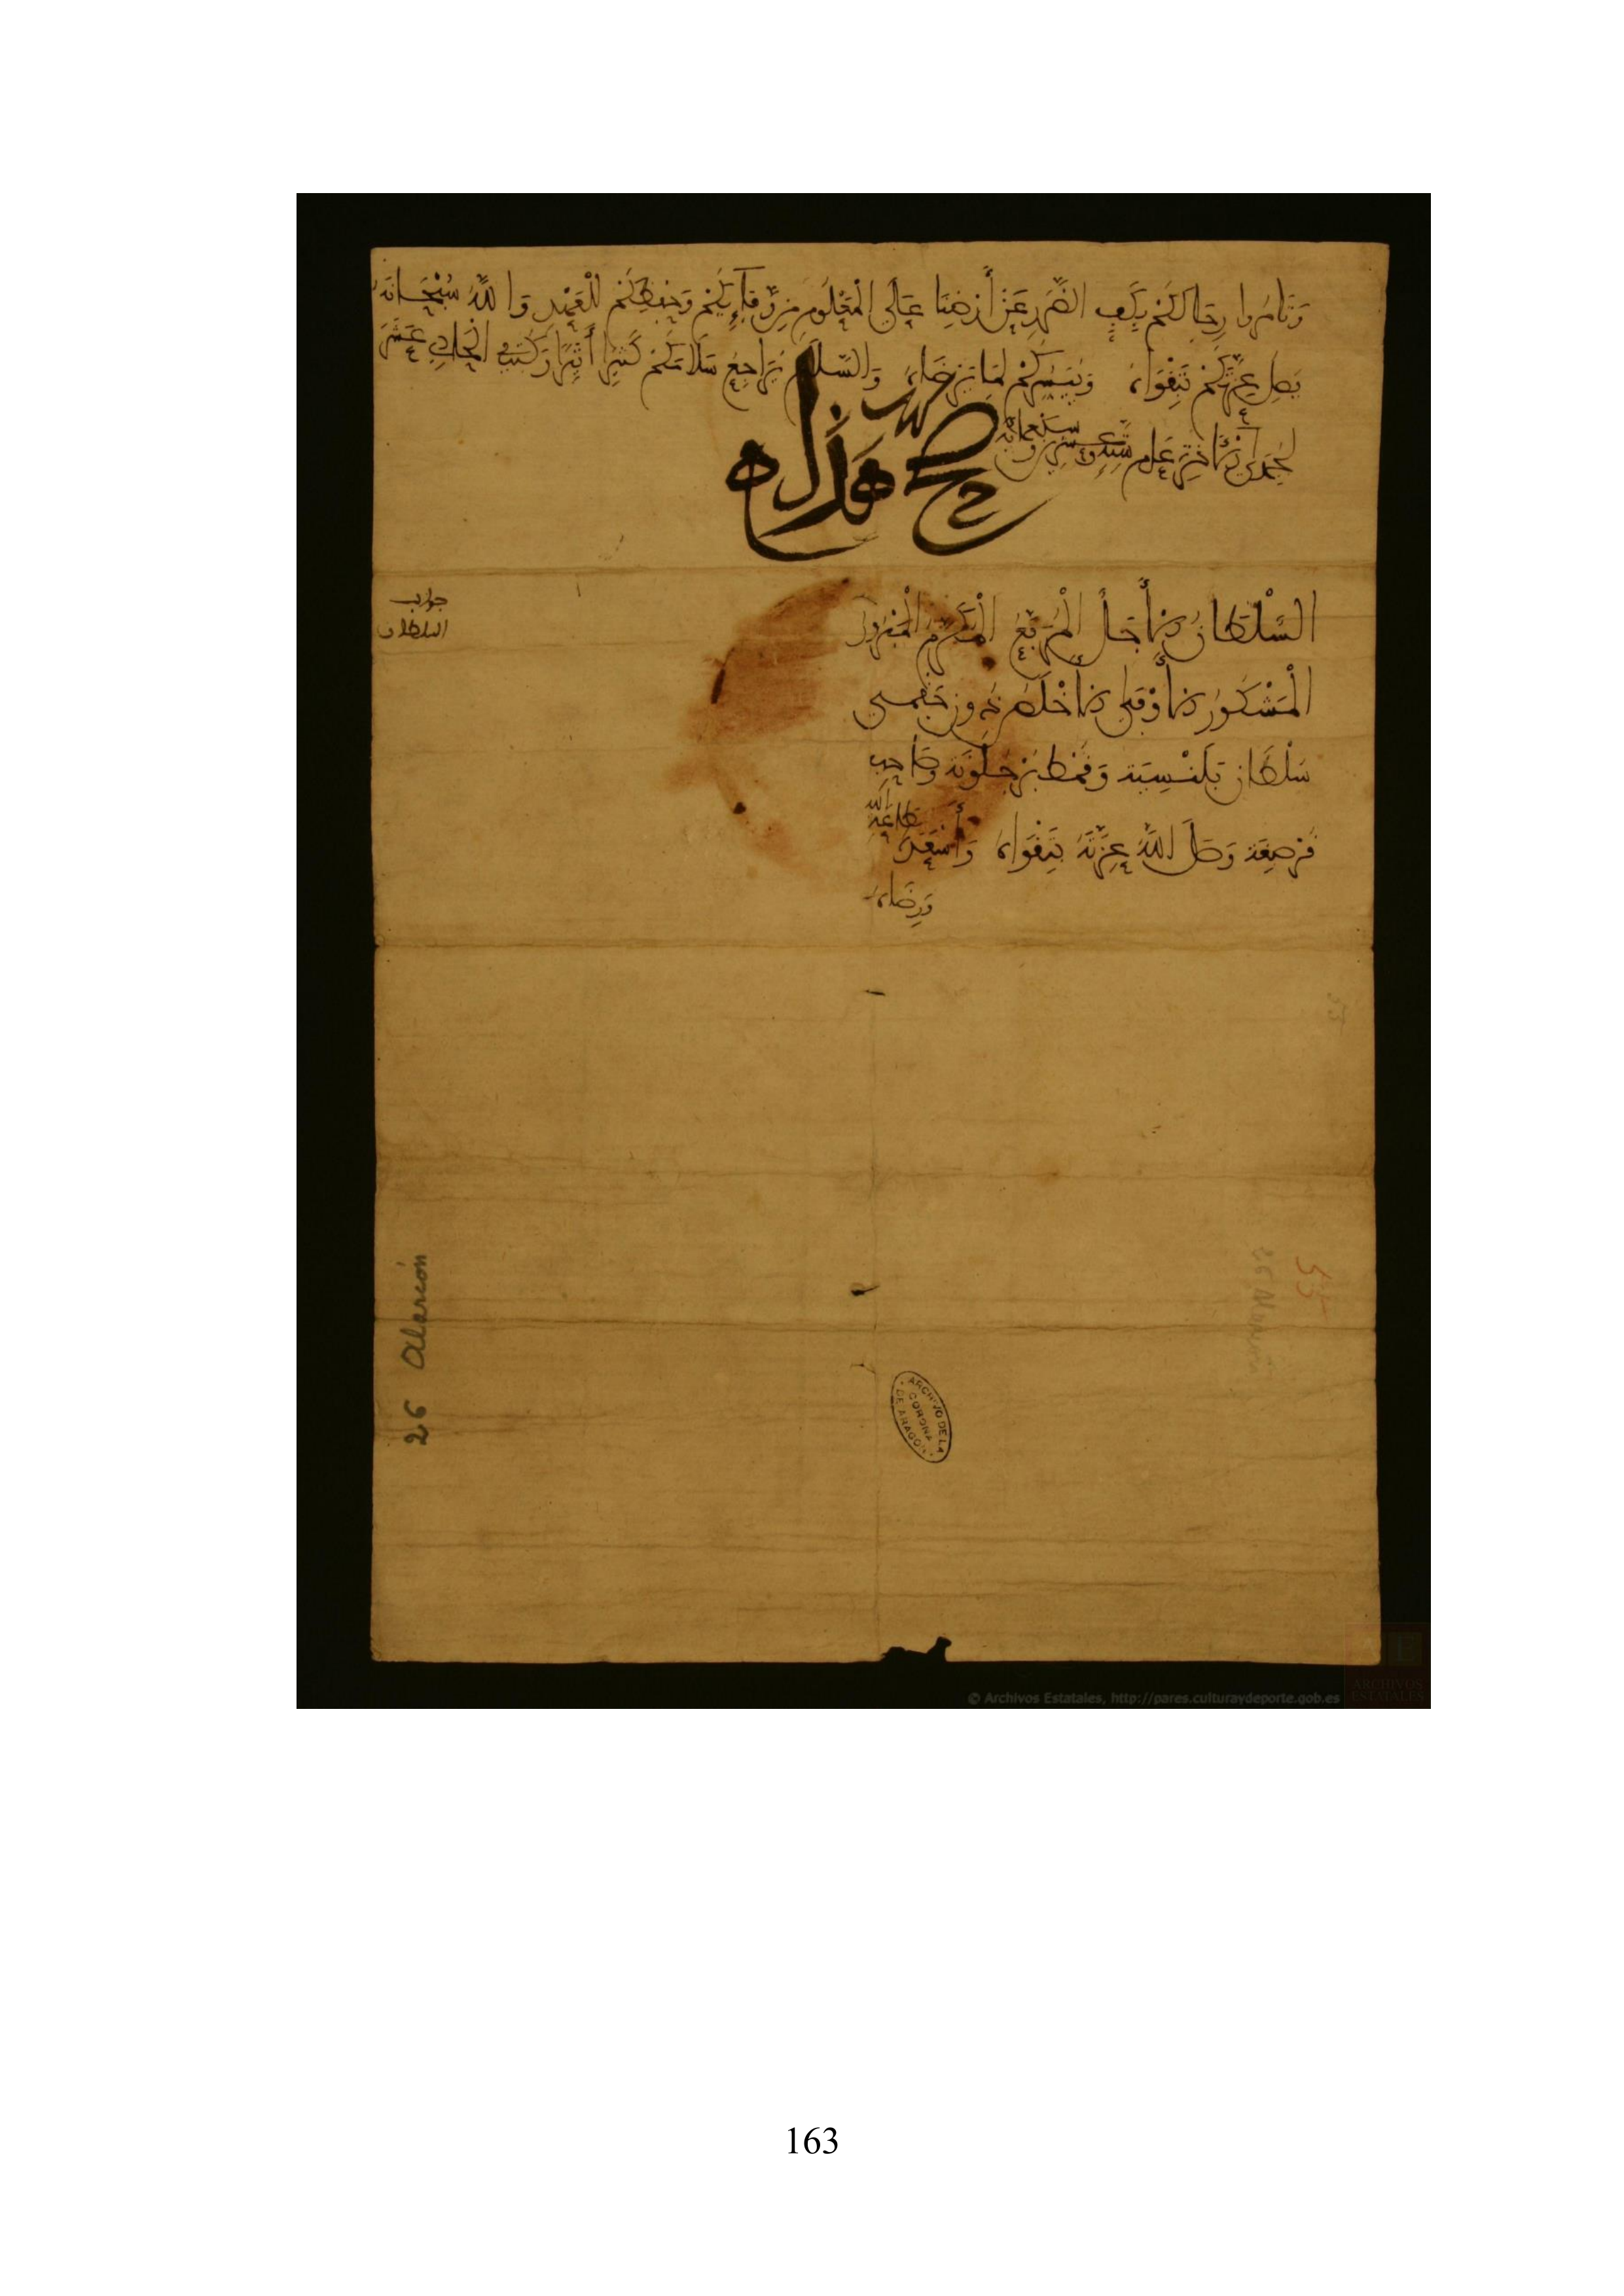 وَتَامُرُوا رِجَالَكُمْ بِكَفِّ الضَّرَرِ عَنْ أَرْضِنَا عَلَى الْمَعْلُومِ مِنْ وَفَائِكُمْ وَحِفْظِكُمْ لِلْعَهْدِ وَاللَّهُ سُبْحَانَهُ
يَصِلُ عِزَّتَكُمْ بِتَقْوَاهُ وَيُيَسِّرُكُمْ لِمَا يَرْضَاهُ وَالسَّلَامُ يُرَاجِعُ سَلَامَكُمْ كَثِيرًا أَثِيرًا وَكُتِبَ فِي الْحَادِي عَشَرَ
لِجُمَادَى الْآخِرَةِ عَامَ وَعِشْرِينَ وَسَبْعِمِائَةٍ
صح هذا
السُّلْطَانُ الْأَجَلُّ الْمُرَفَّعُ الْمُكَرَّمُ الْمَبْرُورُ
الْمَشْكُورُ الْأَوْفَى الْأَخْلَصُ دُون جَقْمِي
سُلْطَانُ بَلَنْسِيَةَ وَقُمْطُ بَرْجَلُونَةَ وَصَاحِبُ
وَصَلَ اللَّهُ عِزَّتَهُ بِتَقْوَاهُ وَأَسْعَدَهُ بِطَاعَةِ اللَّهِ
وَرِضَاهُ
جواب
السلطان
26 Alarcón
55
ARCHIVO DE LA
CORONA
DE ARAGON
© Archivos Estatales, http://pares.culturaydeporte.gob.es
ARCHIVOS
ESTATALES
163